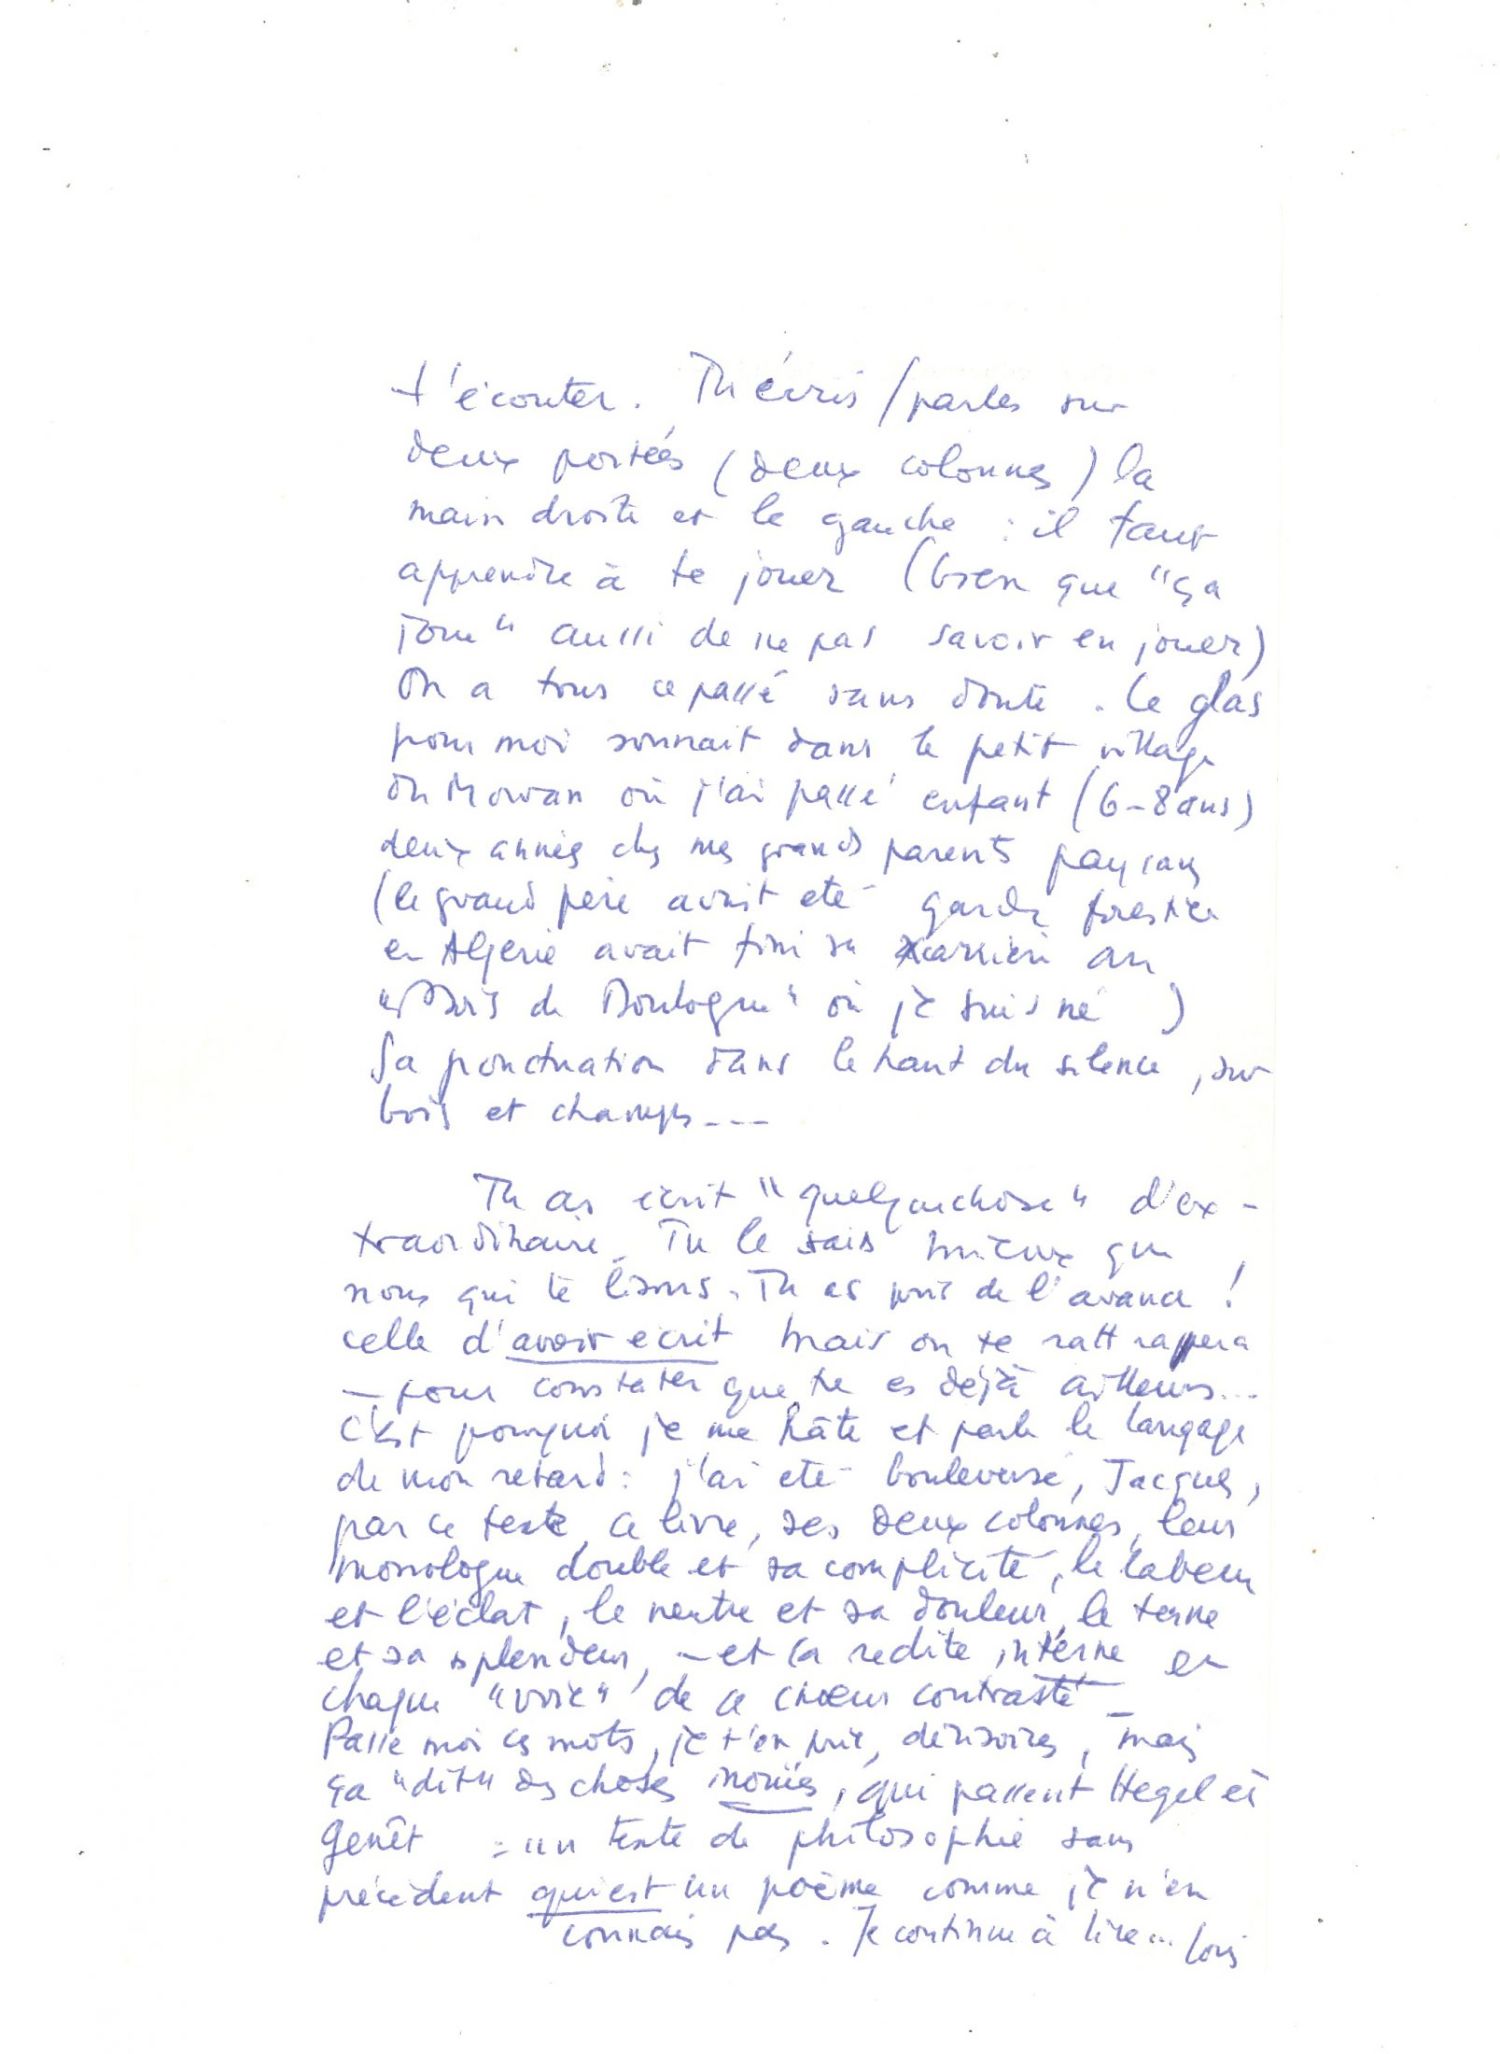 t'écouter. Tu écris / parles sur
deux portées (deux colonnes) la
main droite et la gauche : il faut
apprendre à te jouer (bien que "ça
joue" aussi de ne pas savoir en jouer)
On a tous ce passé sans doute. Le glas
pour moi sonnait dans le petit village
du Morvan où j'ai passé enfant (6-8 ans)
deux années chez mes grands parents paysans
(le grand père avait été garde forestier
en Algérie avait fini sa carrière au
"Bois de Boulogne" où je suis né )
Sa ponctuation dans le haut du silence, sur
bois et champs---
Tu as écrit "quelquechose" d'ex-
traordinaire. Tu le sais mieux que
nous qui te lisons. Tu as pris de l'avance !
celle d'avoir écrit mais on te rattrappera
— pour constater que tu es déjà ailleurs...
C'est pourquoi je me hâte et parle le langage
de mon retard : j'ai été bouleversé, Jacques,
par ce texte, ce livre, ses deux colonnes, leur
monologue double et sa complicité, le labeur
et l'éclat, le neutre et sa douleur, le terne
et sa splendeur, – et la redite interne en
chaque "voix" de ce choeur contrasté –
Passe moi ces mots, je t'en prie, dérisoires, mais
ça "dit" des choses inouïes, qui passent Hegel et
Genêt : un texte de philosophie sans
précédent qui est un poème comme je n'en
connais pas. Je continue à lire... Louis